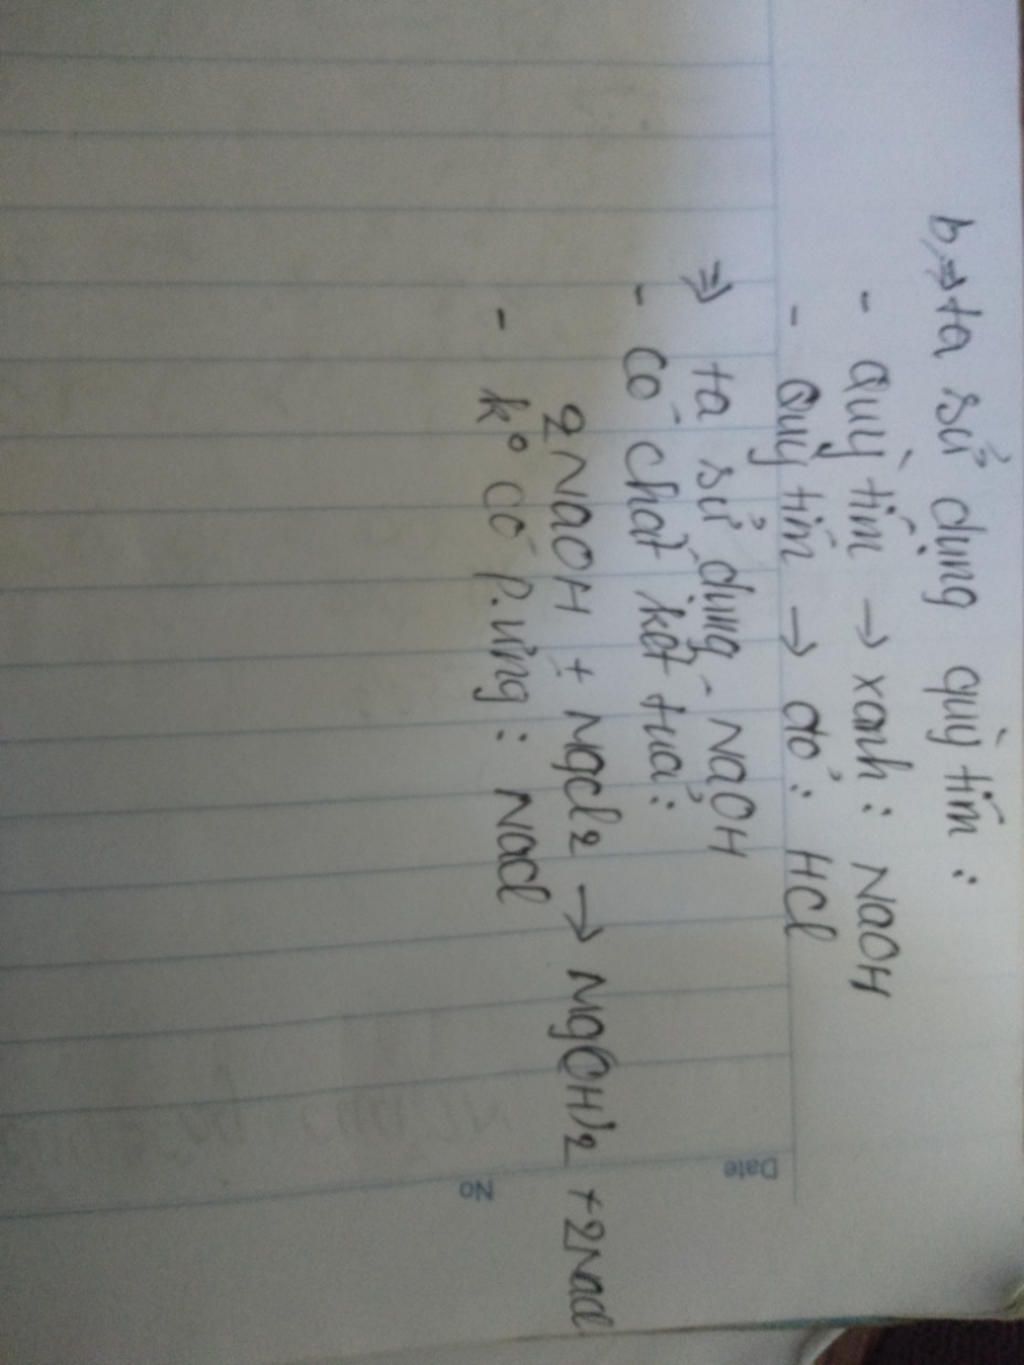 b, => ta sử dụng quỳ tím :
- quỳ tím → xanh : NaOH
- Quỳ tím → đỏ : HCl
=> ta sử dụng NaOH
- có chất kết tủa :
2NaOH + MgCl2 → Mg(OH)2 + 2NaCl
- ko có p.ứng : NaCl
Date
No